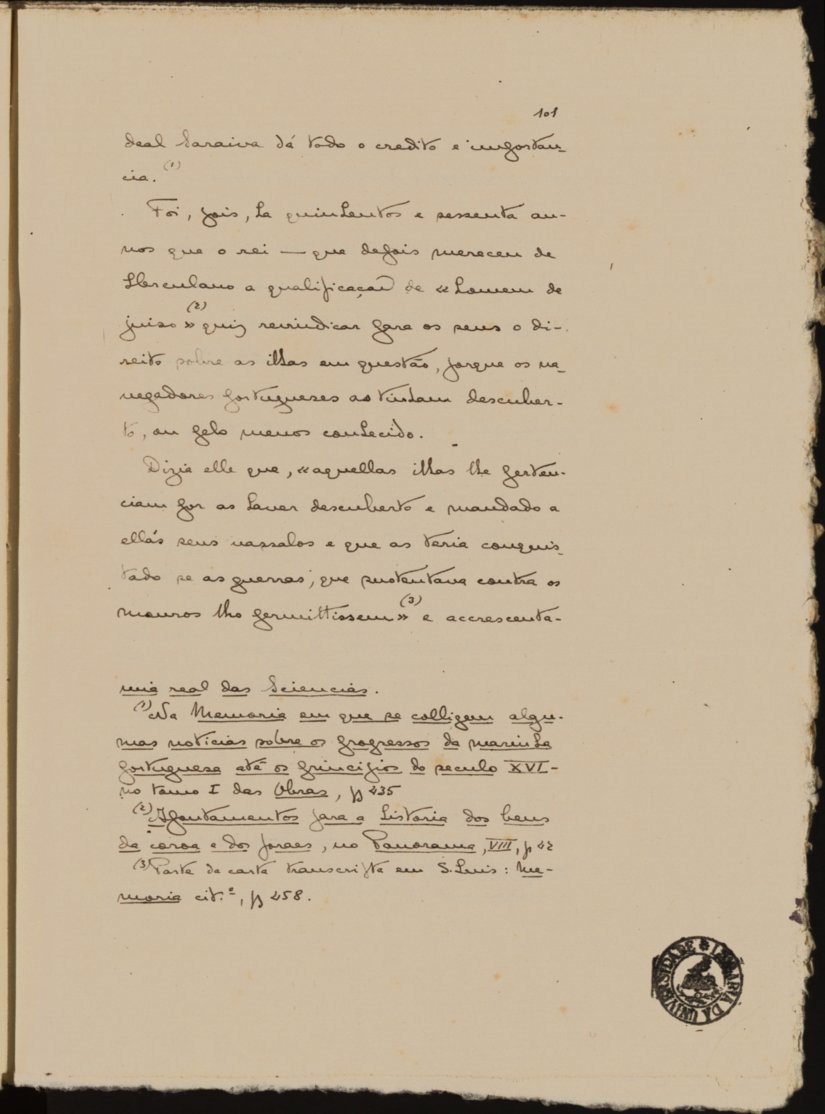 101
deal Saraiva dá todo o credito e importan-
cia. (1)
Foi, pois, ha quinhentos e sessenta an-
nos que o rei — que depois mereceu de
Herculano a qualificação de «homem de
juiso» (2) quiz reivindicar para os seus o di-
reito sobre as ilhas em questão, porque os na-
vegadores portugueses as tinham descuber-
to, ou pelo menos conhecido.
Dizia elle que, «aquellas ilhas lhe perten-
ciam por as haver descuberto e mandado a
ellas seus vassalos e que as teria conquis-
tado se as guerras, que sustentava contra os
mouros lho permittissem» (3) e accrescenta-
mia real das Sciencias.
(1) Na Memoria em que se colligem algu-
mas noticias sobre os progressos da marinha
portuguesa até os principios do seculo XVI -
no tomo I das Obras, p 435
(2) Apontamentos para a historia dos bens
da coroa e dos foraes, no Panorama, VIII, p 42
(3) Parte da carta transcripta em S. Luis: Me-
moria cit.ª, p 458.
LIVRARIA DA UNIVERSIDADE